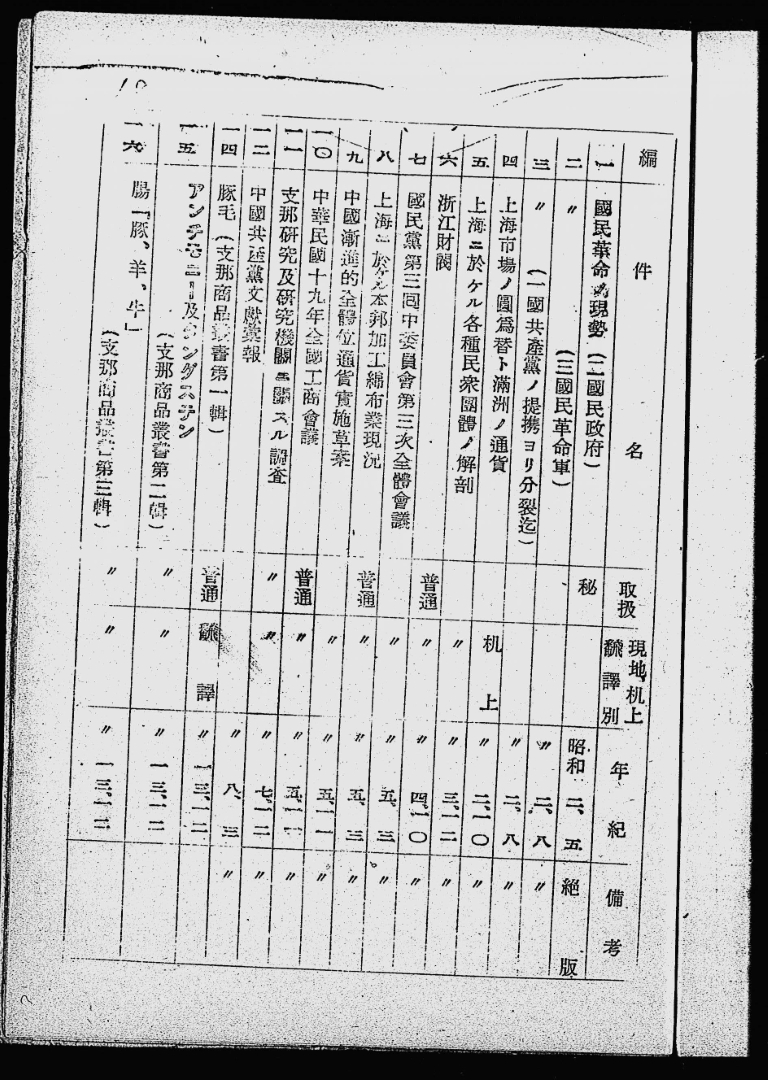 編 件名 取扱 現地机上飜譯別 年紀 備考
一 國民革命ノ現勢(二國民政府) 秘 昭和 二、五 絕版
二 〃 (三國民革命軍) 〃 二、八 〃
三 〃 (一國共產黨ノ提携ヨリ分裂迄) 〃 二、八 〃
四 上海市場ノ圓爲替ト滿洲ノ通貨 机上 〃 二、一〇 〃
五 上海ニ於ケル各種民衆團體ノ解剖 〃 〃 三、一二 〃
六 浙江財閥 普通 〃 〃 四、一〇 〃
七 國民黨第三回中委員會第三次全體會議 〃 〃 五、三 〃
八 上海ニ於ケル本邦加工綿布業現況 普通 〃 〃 五、三 〃
九 中國漸進的金體位通貨實施草案 〃 〃 五、一一 〃
一〇 中華民國十九年全國工商會議 普通 〃 〃 五、一一 〃
一一 支那研究及研究機關ニ關スル調査 〃 〃 〃 七、一二 〃
一二 中國共產黨文獻彙報 〃 八、三 〃
一四 豚毛(支那商品叢書第一輯) 普通 飜譯 〃 一三、一二
一五 アンチモニー及タングステン(支那商品叢書第二輯) 〃 〃 〃 一三、一二
一六 腸「豚、羊、牛」(支那商品叢書第三輯) 〃 〃 〃 一三、一二